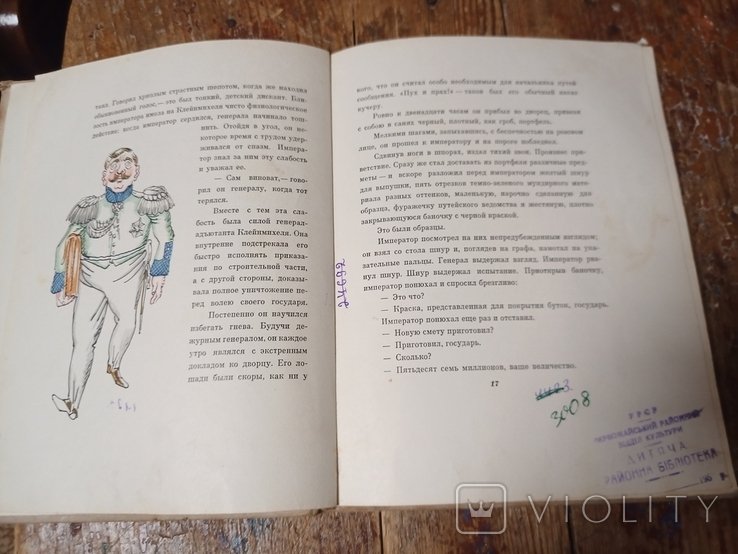 тана. Говорил хриплым страстным шепотом, когда же находил
обыкновенный голос,— это был тонкий, детский дискант. Бли-
зость императора имела на Клейнмихеля чисто физиологическое
действие: когда император сердился, генерала начинало тош-
нить. Отойдя в угол, он не-
которое время с трудом удер-
живался от спазм. Импера-
тор знал за ним эту слабость
и уважал ее.
— Сам виноват,— гово-
рил он генералу, когда тот
терялся.
Вместе с тем эта сла-
бость была силой генерал-
адъютанта Клейнмихеля. Она
внутренне подстрекала его
быстро исполнять приказа-
ния по строительной части,
а с другой стороны, доказы-
вала полное уничтожение пе-
ред волею своего государя.
Постепенно он научился
избегать гнева. Будучи де-
журным генералом, он каждое
утро являлся с экстренным
докладом ко дворцу. Его ло-
шади были скоры, как ни у
кого, что он считал особо необходимым для начальника путей
сообщения. «Пух и прах!» — таков был его обычный наказ
кучеру.
Ровно к двенадцати часам он прибыл во дворец, привезя
с собою в санях черный, плотный, как гроб, портфель.
Мелкими шагами, запыхавшись, с беспечностью на розовом
лице, он прошел к императору и на пороге побледнел.
Сдвинув ноги в шпорах, издал тихий звон. Произнес при-
ветствие. Сразу же стал доставать из портфеля различные пред-
меты — и вскоре разложил перед императором желтый шнур
для выпушки, пять отрезков темно-зеленого мундирного мате-
риала разных оттенков, маленькую, нарочно сделанную для
образца, фуражечку путейского ведомства и жестяную, плотно
закрывающуюся баночку с черной краской.
Это были образцы.
Император посмотрел на них непредубежденным взглядом;
он взял со стола шнур и, поглядев на графа, намотал на ука-
зательные пальцы. Генерал выдержал взгляд. Император рва-
нул шнур. Шнур выдержал испытание. Приоткрыв баночку,
император понюхал и спросил брезгливо:
— Это что?
— Краска, представленная для покрытия будок, государь.
Император понюхал еще раз и отставил.
— Новую смету приготовил?
— Приготовил, государь.
— Сколько?
— Пятьдесят семь миллионов, ваше величество.
17
24692
3008
УРСР
ПЕРВОМАЙСЬКИЙ РАЙОННИЙ
ВІДДІЛ КУЛЬТУРИ
ДИТЯЧА
РАЙОННА БІБЛІОТЕКА
VIOLITY